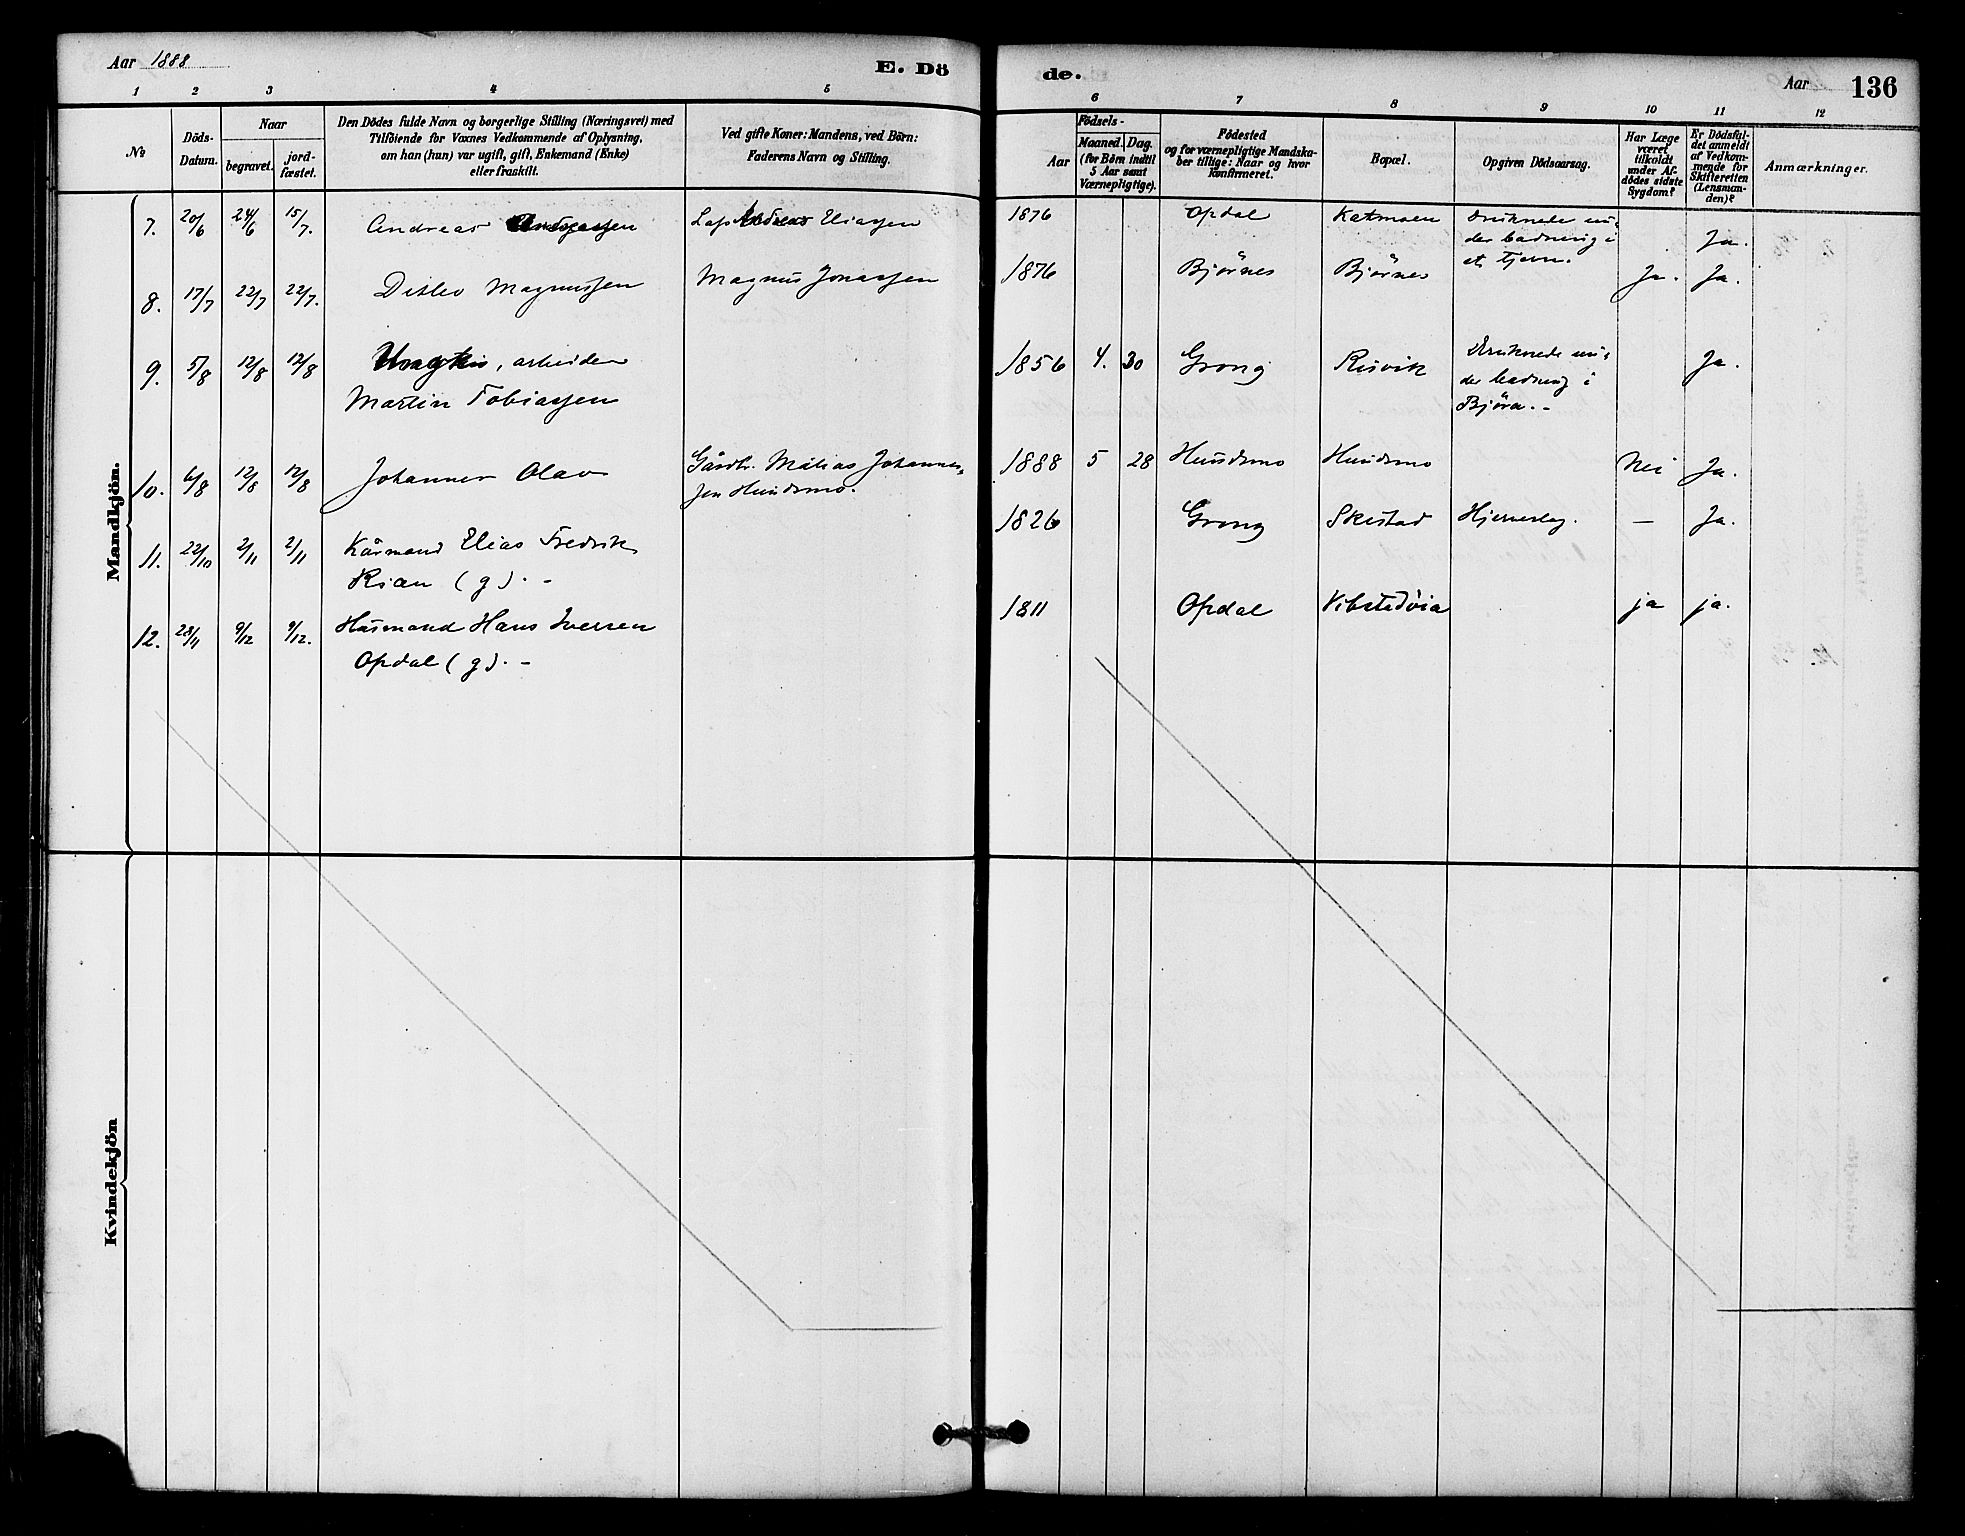 Aar 1888
E. Dö
1 2 3 4 5
№
Döds-
Datum.
Naar
begravet.
jord-
fæstet.
Den Dödes fulde Navn og borgerlige Stilling (Næringsvei) med
Tilföiende for Voxnes Vedkommende af Oplysning,
om han (hun) var ugift, gift, Enkemand (Enke)
eller fraskilt.
Ved gifte Koner: Mandens, ved Börn:
Faderens Navn og Stilling.
Mandkjön.
7. 20/6 24/6 15/7. Andreas Lap Andreas Eliassen
8. 17/7 22/7 22/7. Detlev Magnussen Magnus Jonassen
9. 5/8 12/8 12/8 , arbeider
Martin Tobiassen
10. 6/8 12/8 12/8 Johannes Olav Gårdbr. Matias Johannes-
sen Hundsmo.
11. 22/10 2/11 2/11 Kårmand Elias Fredrik
Rian (g). -
12. 28/11 9/12 9/12. Husmand Hans Iversen
Opdal (g). -
Kvindekjön
de.
Aar
136
6 7 8 9 10 11 12
Födsels-
Aar
Maaned. Dag.
(for Börn indtil
5 Aar samt
Værnepligtige).
Födested
og for værnepligtige Mandska-
ber tillige: Naar og hvor
Konfirmeret.
Bopæl.
Opgiven Dödsaarsag.
Har Læge
været
tilkaldt
under Af-
dödes sidste
Sygdom?
Er Dödsfal-
det anmeldt
af Vedkom-
mende for
Skifteretten
(Lensman-
den)?
Anmærkninger.
1876 Opdal Katmoen Druknede un-
der badning i
et tjern. Ja.
1876 Bjørnes Bjørnes Ja. Ja.
1856 4. 30 Grong Rusvik Druknede un-
der badning i
Bjøra. - Ja.
1888 5 28 Hundsmo Hundsmo Nei Ja.
1826 Grong Skistad Hjerneslag. — Ja.
1811 Opdal Vibstadøia ja ja.